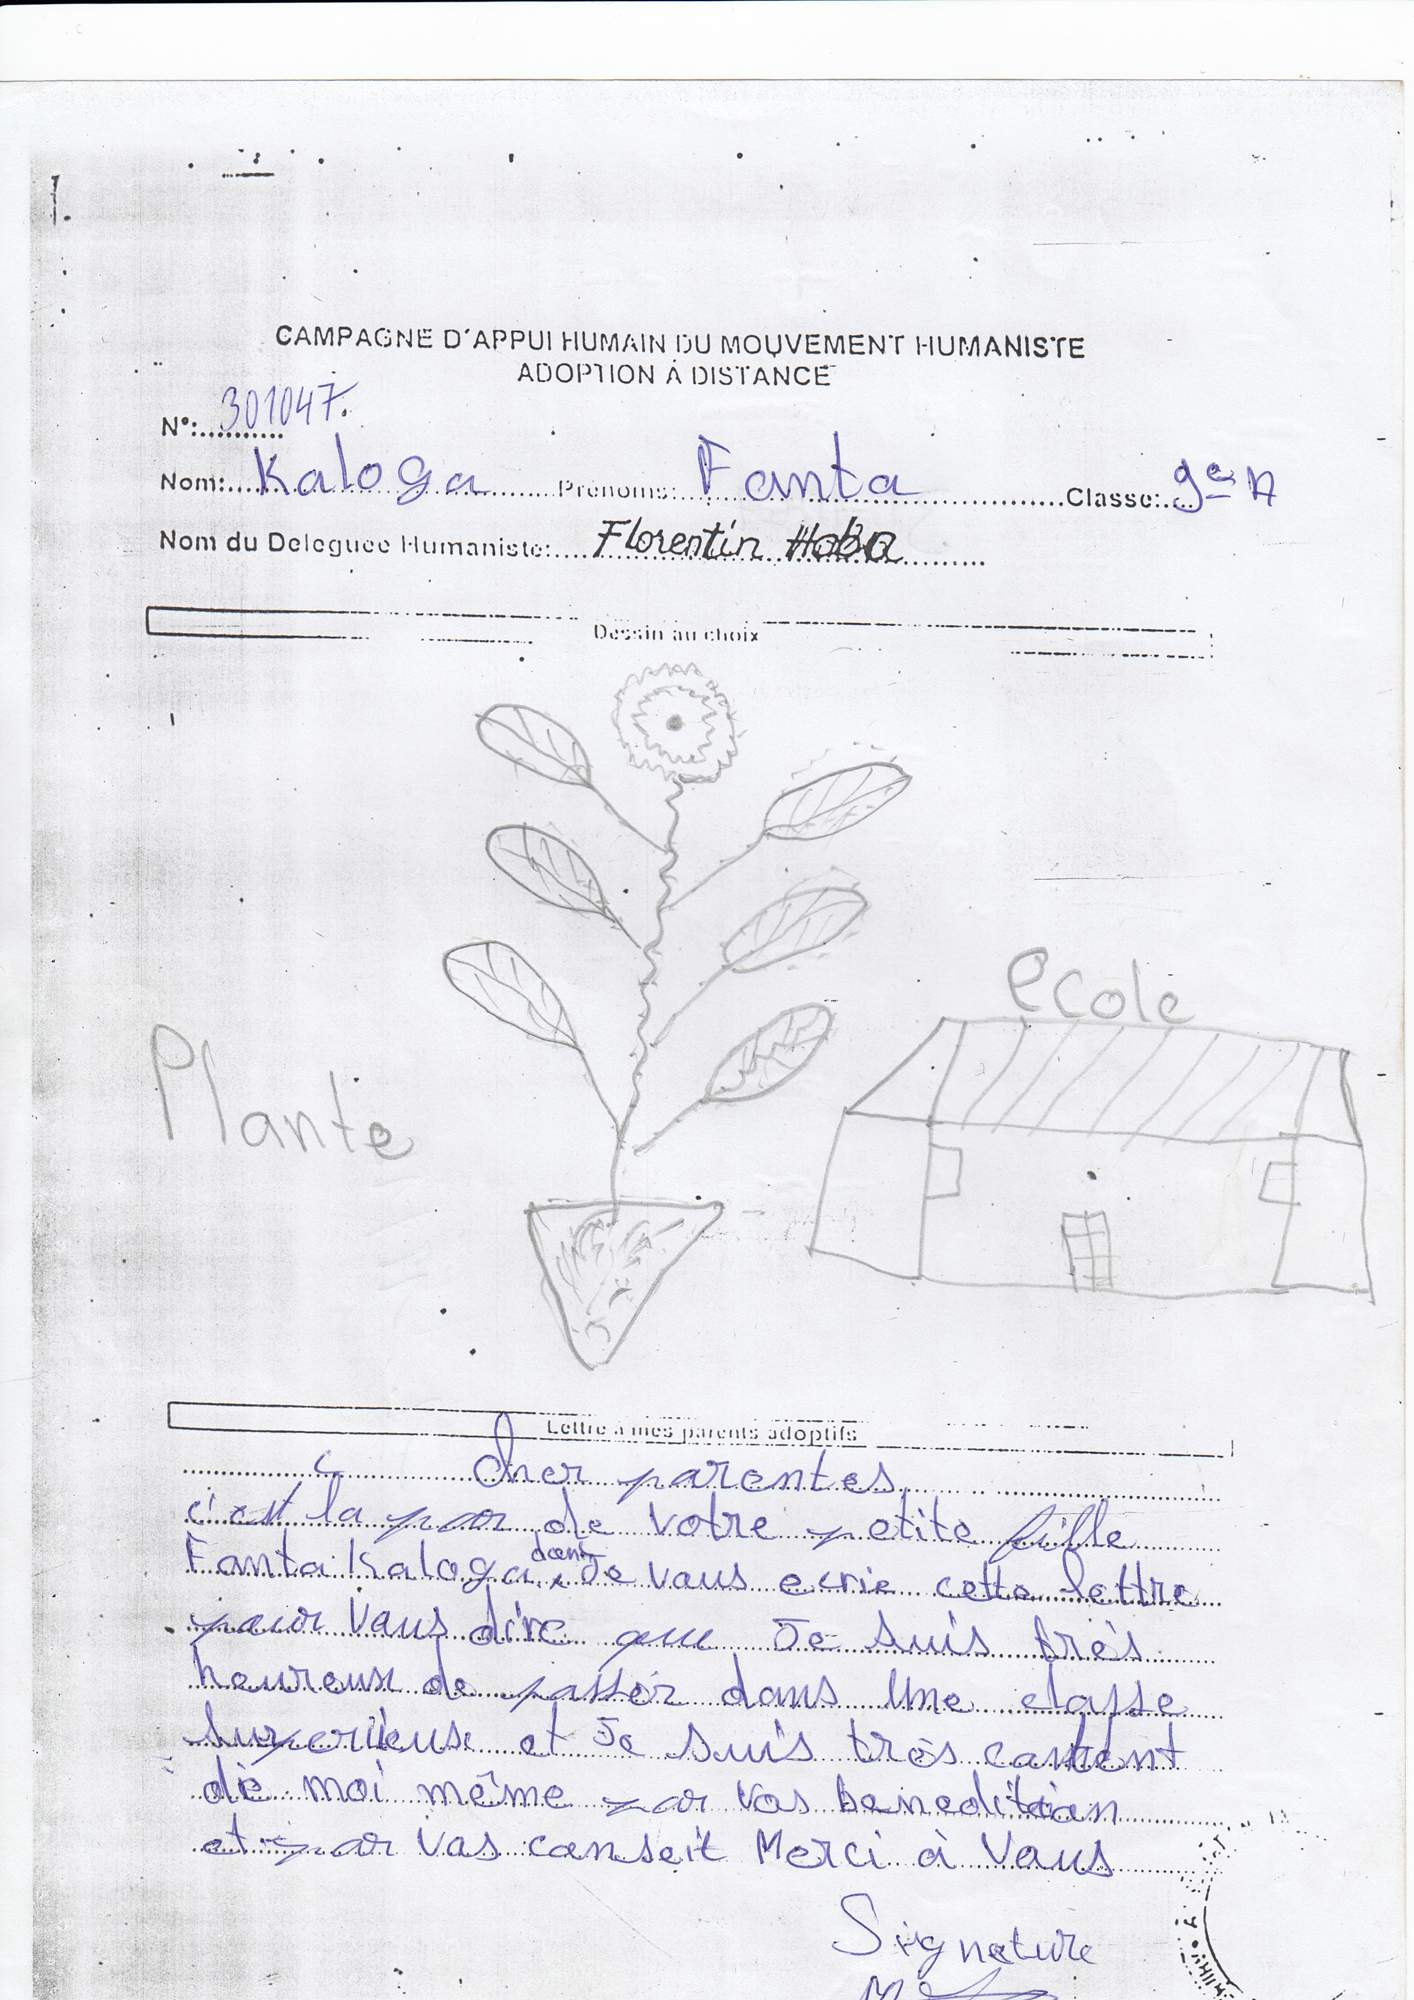 CAMPAGNE D'APPUI HUMAIN DU MOUVEMENT HUMANISTE
ADOPTION À DISTANCE
N°: 301047.
Nom: Kaloga Prénoms: Fanta Classe: 9e A
Nom du Deleguée Humaniste: Florentin Haba
Dessin au choix
ecole
Plante
Lettre à mes parents adoptifs
Cher parentes
c'est la par de votre petite fille
Fanta Kaloga dont Je vous ecrie cette lettre
pour vous dire que Je suis très
heureux de passer dans Une classe
superieuse et Je suis très content
de moi même par vos benedition
et par vos conseit Merci à Vous
Signature